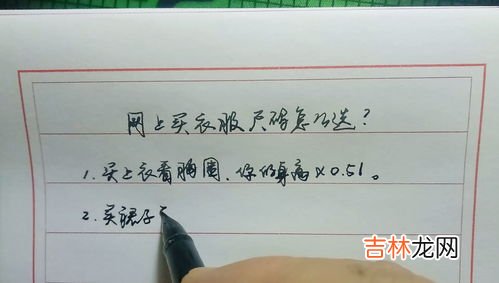 网上买衣服尺码怎么选？
1.买上衣看胸围，你的身高×0.51。
2.买裙子
吉林龙网